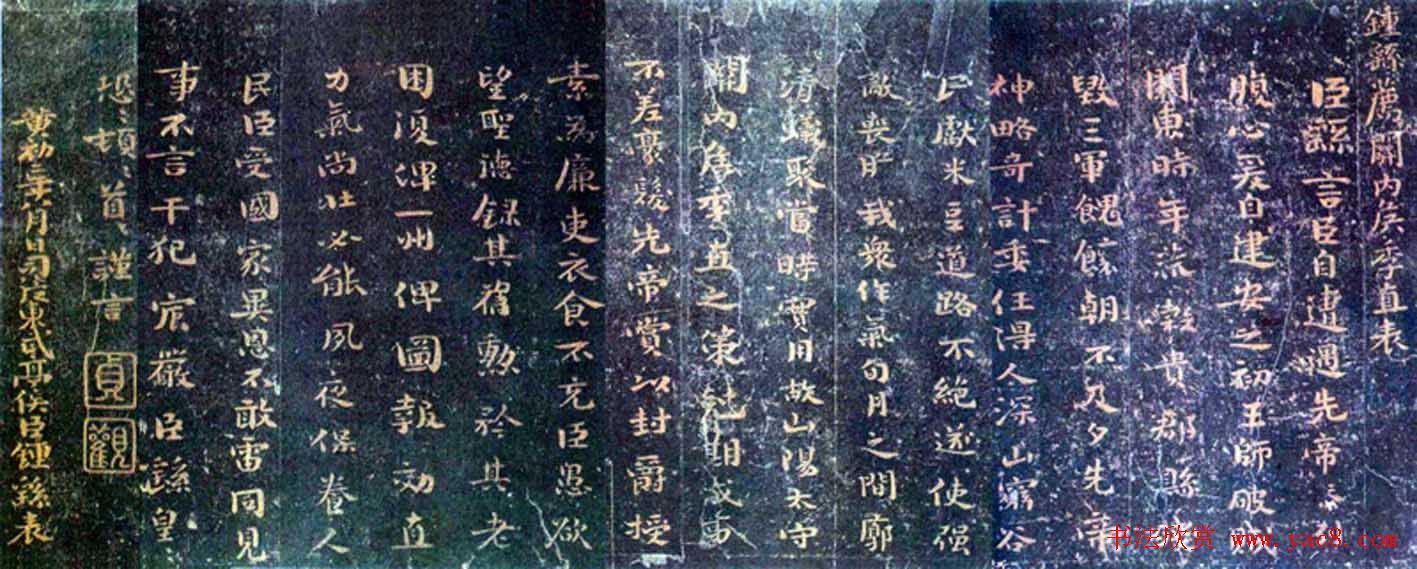 鍾繇薦關內侯季直表
臣繇言臣自遭遇先帝忝列
腹心爰自建安之初王師破賊
關東時年荒穀貴郡縣
毀三軍餽饟朝不及夕先帝
神略奇計委任得人深山窮谷
民獻米豆道路不絕遂使强
敵喪膽我衆作氣旬月之間廓
清蟻聚當時實用故山陽太守
關內侯季直之策剋期成事
不差豪髮先帝賞以封爵授
素為廉吏衣食不充臣愚欲
望聖德錄其舊勲矜其老
困復俾一州俾圖報効直
力氣尚壯必能夙夜保養人
民臣受國家異恩不敢雷同見
事不言干犯宸嚴臣繇皇
恐頓首謹言
貞
觀
黃初二年八月日司徒東武亭侯臣鍾繇表
书法欣赏 www.yac8.com